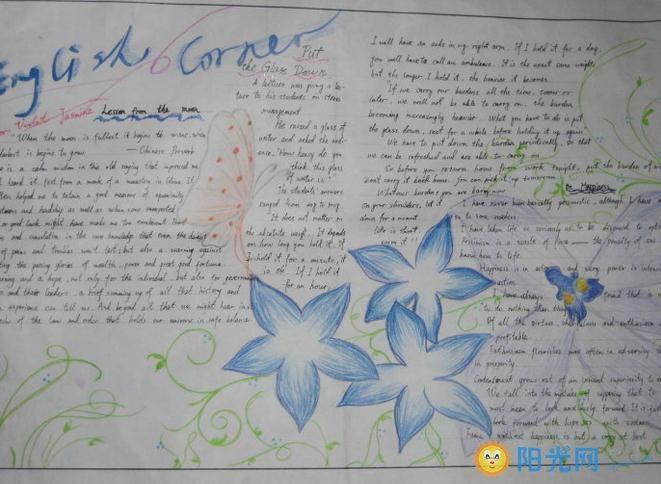 English Corner
Violet Jasmine
Lesson from the moon
When the moon is fullest it begins to wane, when
darkest it begins to grow. — Chinese Proverb
is a calm wisdom in this old saying that impressed me
I heard it first from a monk of a monastery in China. It
often helped me to retain a good measure of equanimity
and hardship as well as when some unexpected
or good luck might have made me too exuberant. There
and consolation in the sure knowledge that even the darkest
of pains and troubles won't last; but also a warning against
the passing glories of wealth, power and great good fortune
and a hope, not only for the individual, but also for governments
and their leaders, a brief summing up of all that history and
experience can tell us. And beyond all that we might hear in
of the law and order that holds our universe in safe balance
Put
the Glass Down
A lecturer was giving a lec-
ture to his students on stress
management.
He raised a glass of
water and asked the audi-
ence, "How heavy do you
think this glass
of water is?"
The students' answers
ranged from 20g to 500g.
It does not matter on
the absolute weight. It depends
on how long you hold it. If
I hold it for a minute, it
is OK. If I hold it
for an hour,
I will have an ache in my right arm. If I hold it for a day,
you will have to call an ambulance. It is the exact same weight,
but the longer I hold it, the heavier it becomes.
If we carry our burdens all the time, sooner or
later, we will not be able to carry on, the burden
becoming increasingly heavier. What you have to do is put
the glass down, rest for a while before holding it up again.
We have to put down the burden periodically, so that
we can be refreshed and are able to carry on.
So before you return home from work tonight, put the burden of
Don't carry it back home. You can pick it up tomorrow.
Whatever burdens you are having now
on your shoulders, let it
down for a moment.
Life is short,
enjoy it!!
On Happiness
I have never been basically pessimistic, although I have
to some sadness
I have taken life too seriously to be disposed to
Pessimism is a waste of force — the penalty of one
know how to live.
Happiness is in action, and every power is intended
action.
I have always found that is
to do nothing than they
Of all the virtues, cheerfulness and enthusiasm
profitable.
Enthusiasm flourishes more often in adversity than
in prosperity.
Contentment grows out of an inward superiority to
We fall into the mistake of supposing that to
must mean to look anxiously forward. It is just
look forward with hope as with sadness.
happiness is but a copy at best
阳光网